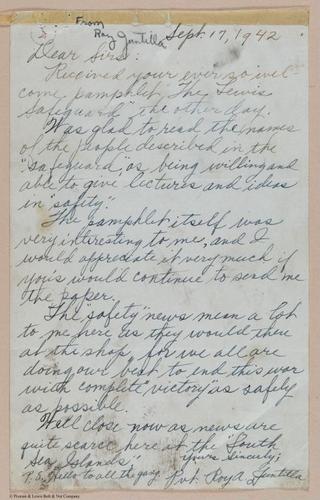 From
Roy Gentilla
Sept. 17, 1942
Dear Sirs:
Received your ever so wel-
come pamphlet, "The Lewis
Safeguard" the other day.
Was glad to read the names
of the people described in the
"Safeguard", as being willing and
able to give lectures and ideas
in "safety".
The pamphlet itself was
very interesting to me, and I
would appreciate it very much if
you's would continue to send me
the paper.
The "safety" news mean a lot
to me here as they would there
at the shop, for we all are
doing our best to end this war
with complete "victory" as safely
as possible.
Well close now as news are
quite scarce here at the "South
Sea Islands".
Yours Sincerely;
P.S. Hello to all the gang. Pvt. Roy A. Gentilla